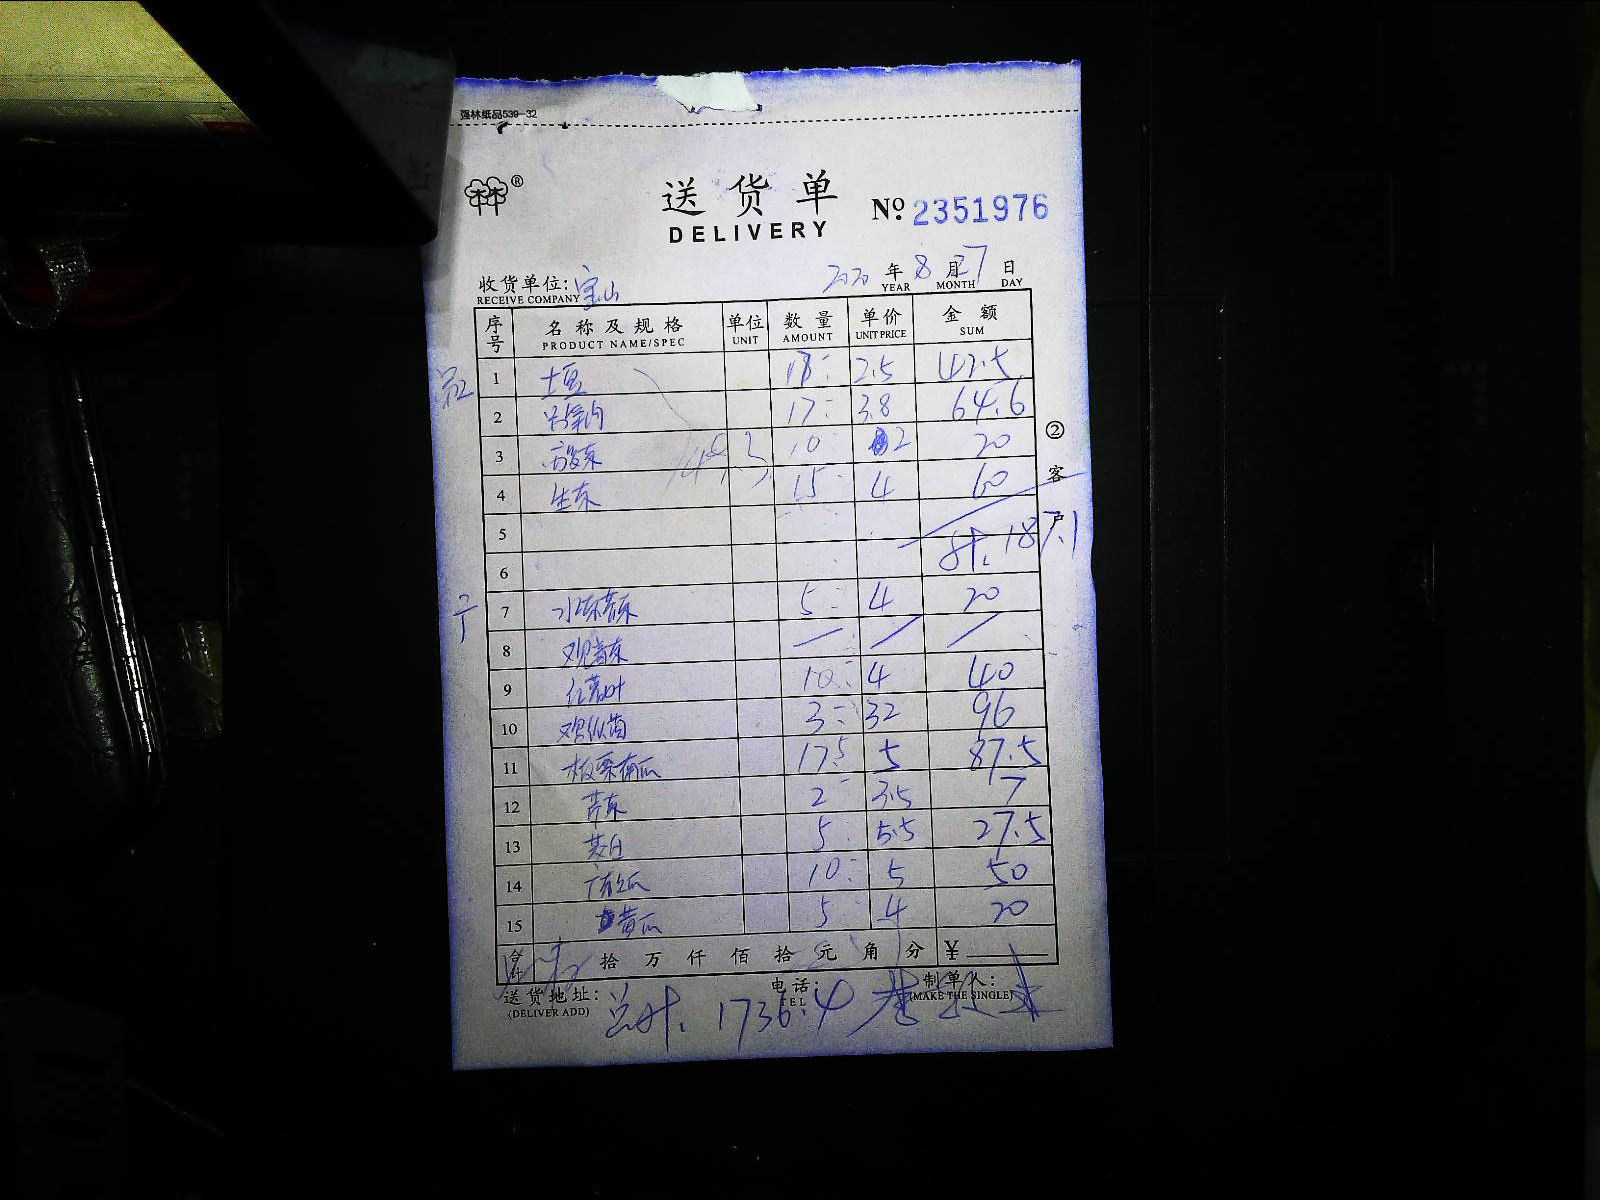 强林纸品539-32
®
送货单
DELIVERY
№ 2351976
收货单位: 宝山
RECEIVE COMPANY
2020 年 8 月 27 日
YEAR MONTH DAY
序号 名称及规格 单位 数量 单价 金额
PRODUCT NAME/SPEC UNIT AMOUNT UNIT PRICE SUM
1 土豆 2.5 42.5
2 17 3.8 64.6
3 10 2 20
4 生菜 15 4 60
5
6 计. 187.1
7 5 4 20
8
9 10 4 40
10 3 32 96
11 板栗南瓜 17.5 5 87.5
12 芹菜 2 3.5 7
13 茭白 5 5.5 27.5
14 10 5 50
15 黄瓜 5 4 20
合计 拾 万 仟 佰 拾 元 角 分 ¥
送货地址:
(DELIVER ADD)
电话:
TEL
制单人:
(MAKE THE SINGLE)
总计. 1736.4
②客户